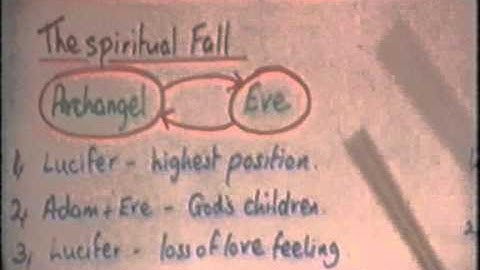 The spiritual Fall
Archangel Eve
1, Lucifer - highest position.
2, Adam + Eve - God's children.
3, Lucifer - loss of love feeling